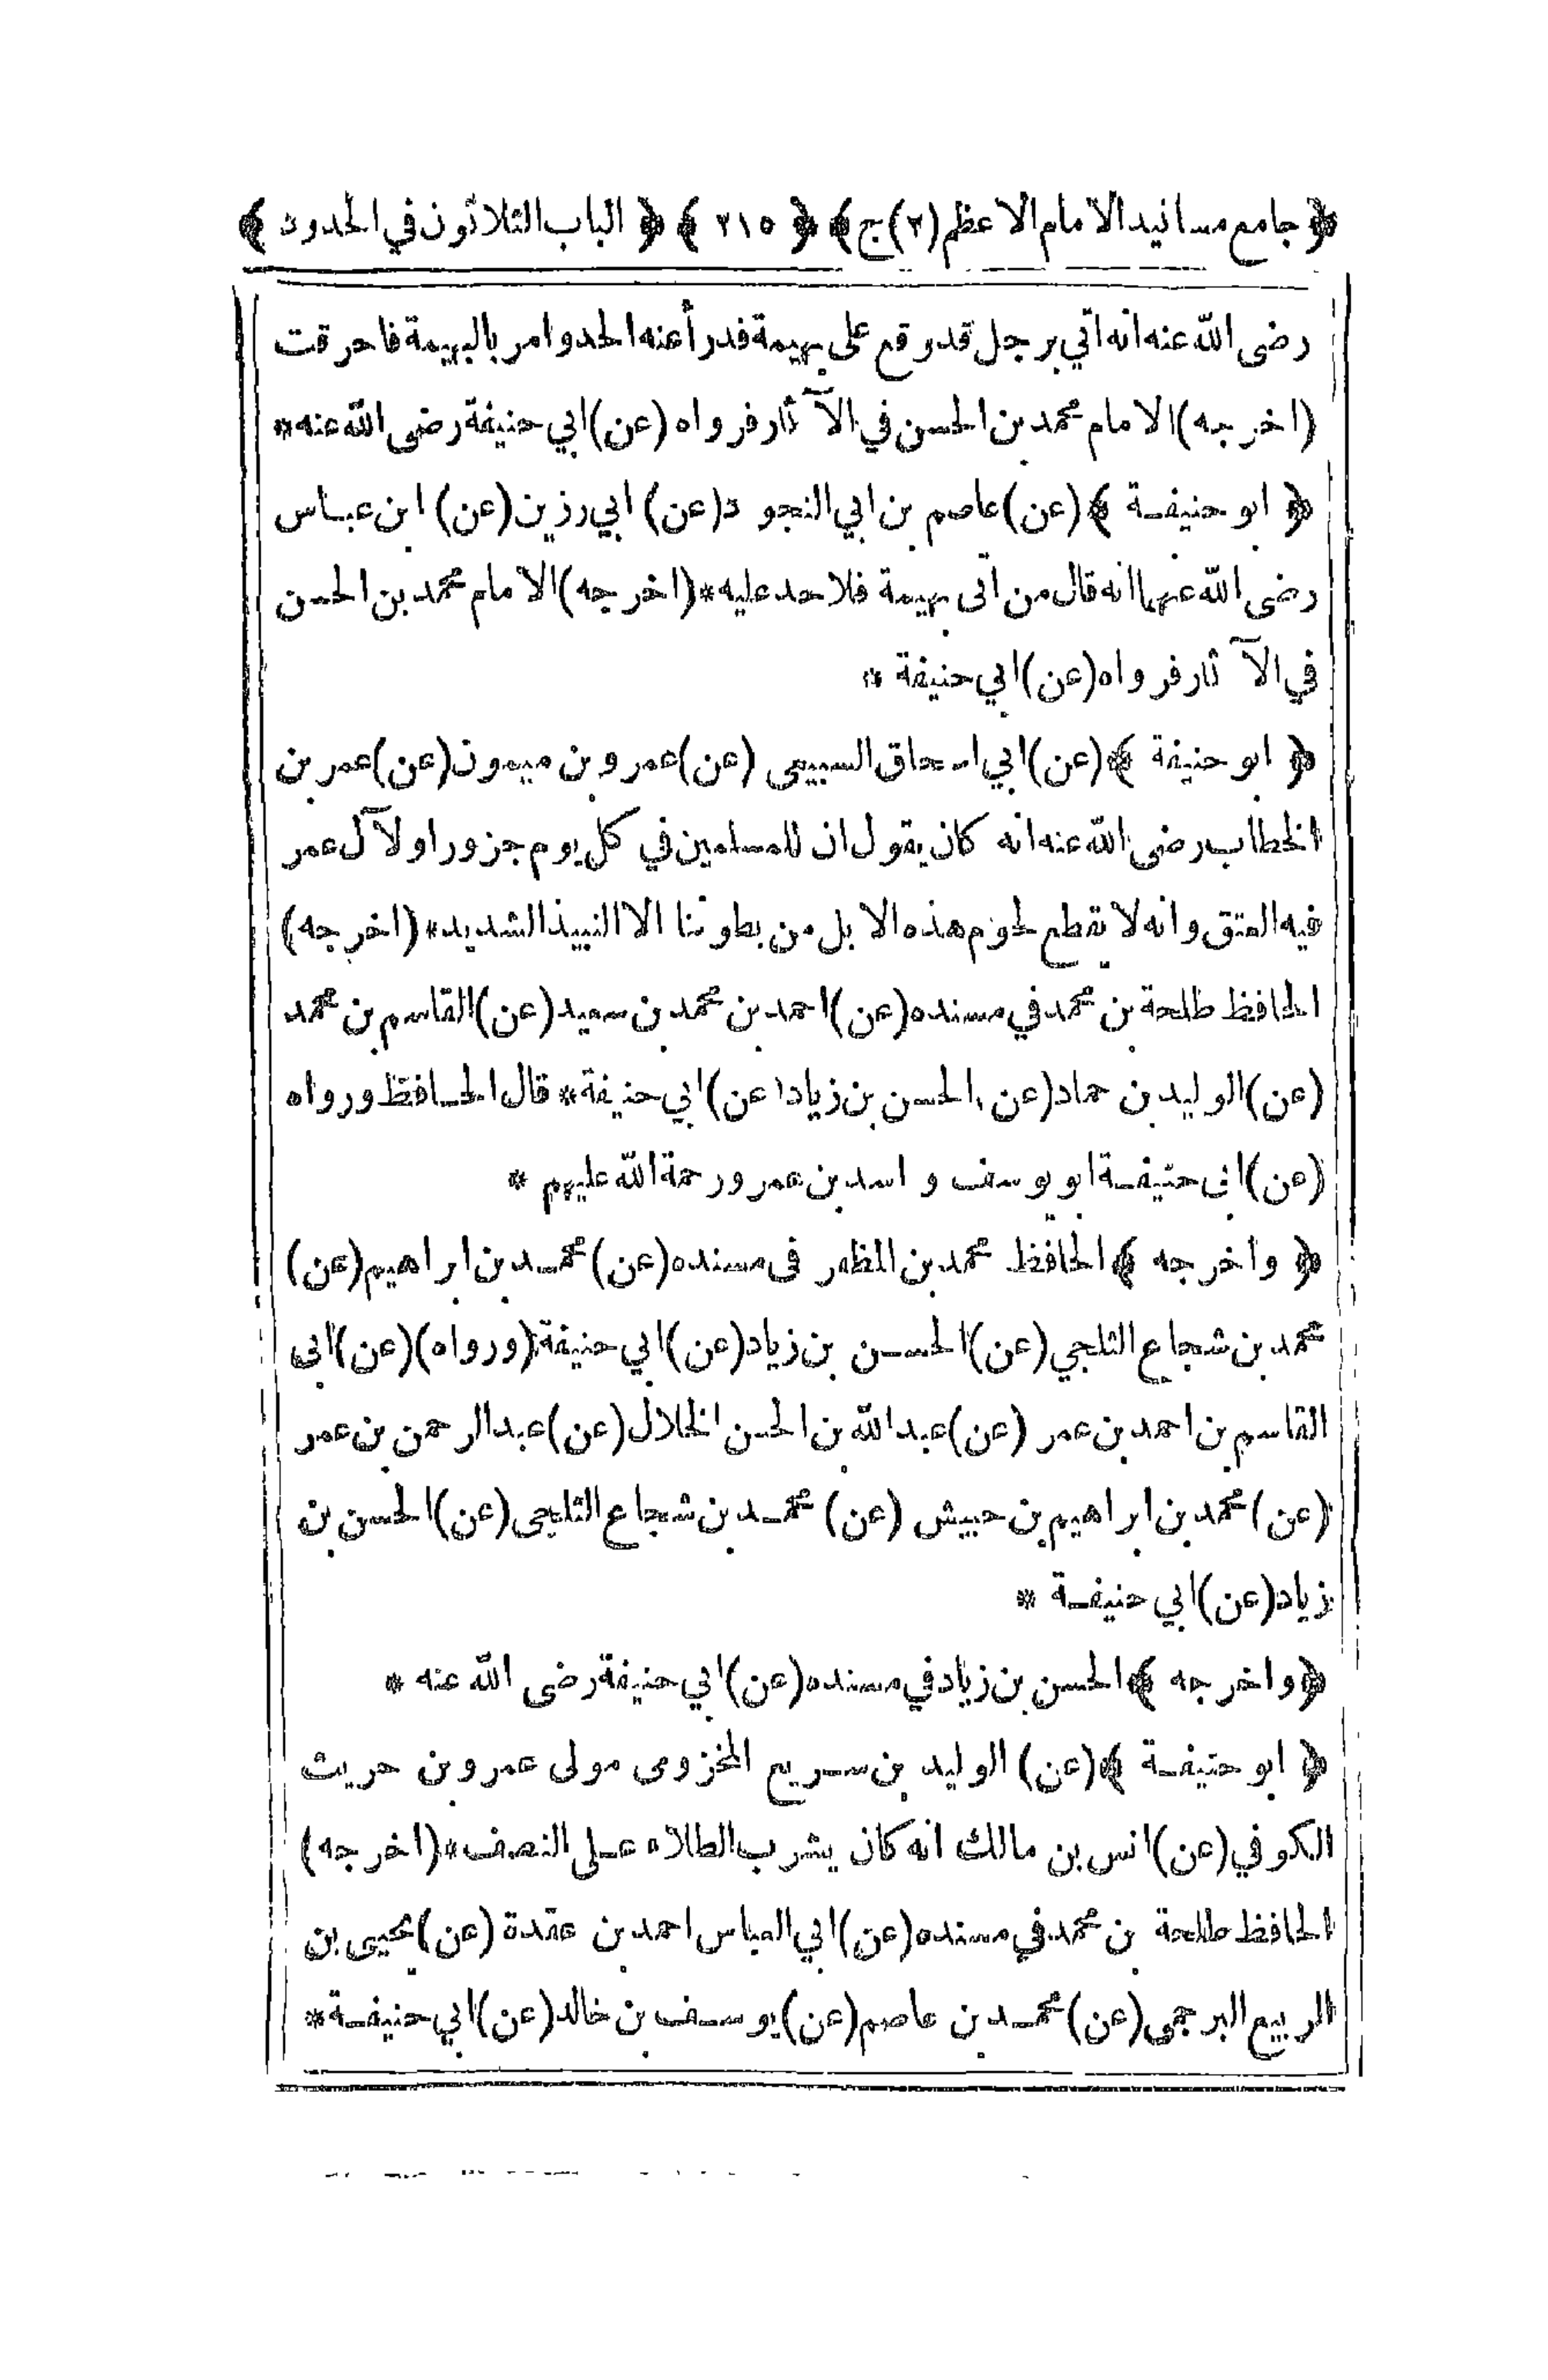 ﴿ جامع مسانيد الامام الاعظم (٢) ج ﴾ ﴿ ٢١٥ ﴾ ﴿ الباب الثلاثون في الحدود ﴾
رضى الله عنه انه اتي برجل قد وقع على بهيمة فدرأ عنه الحد وامر بالبهيمة فاحرقت
(اخرجه) الامام محمد بن الحسن في الآثار فرواه (عن) ابي حنيفة رضى الله عنه *
﴿ ابو حنيفة ﴾ (عن) عاصم بن ابي النجود (عن) ابي رزين (عن) ابن عباس
رضى الله عنهما انه قال من اتى بهيمة فلا حد عليه * (اخرجه) الامام محمد بن الحسن
في الآثار فرواه (عن) ابي حنيفة *
﴿ ابو حنيفة ﴾ (عن) ابي اسحاق السبيعى (عن) عمرو بن ميمون (عن) عمر بن
الخطاب رضى الله عنه انه كان يقول ان للمسلمين في كل يوم جزورا ولآل عمر
فيه العتق وانه لا يقطع لحوم هذه الابل من بطوننا الا النبيذ الشديد * (اخرجه)
الحافظ طلحة بن محمد في مسنده (عن) احمد بن محمد بن سعيد (عن) القاسم بن محمد
(عن) الوليد بن حماد (عن) الحسن بن زياد (عن) ابي حنيفة * قال الحافظ ورواه
(عن) ابى حنيفة ابو يوسف و اسد بن عمرو رحمة الله عليهم *
﴿ واخرجه ﴾ الحافظ محمد بن المظفر فى مسنده (عن) محمد بن ابراهيم (عن)
محمد بن شجاع الثلجي (عن) الحسن بن زياد (عن) ابي حنيفة (ورواه) (عن) ابى
القاسم بن احمد بن عمر (عن) عبد الله بن الحسن الخلال (عن) عبد الرحمن بن عمر
(عن) محمد بن ابراهيم بن حبيش (عن) محمد بن شجاع الثلجى (عن) الحسن بن
زياد (عن) ابي حنيفة *
﴿ واخرجه ﴾ الحسن بن زياد في مسنده (عن) ابي حنيفة رضى الله عنه *
﴿ ابو حنيفة ﴾ (عن) الوليد بن سريع المخزومى مولى عمرو بن حريث
الكوفي (عن) انس بن مالك انه كان يشرب الطلاء على النصف * (اخرجه)
الحافظ طلحة بن محمد في مسنده (عن) ابي العباس احمد بن عقدة (عن) يحيى بن
الربيع البرجمى (عن) محمد بن عاصم (عن) يوسف بن خالد (عن) ابي حنيفة *